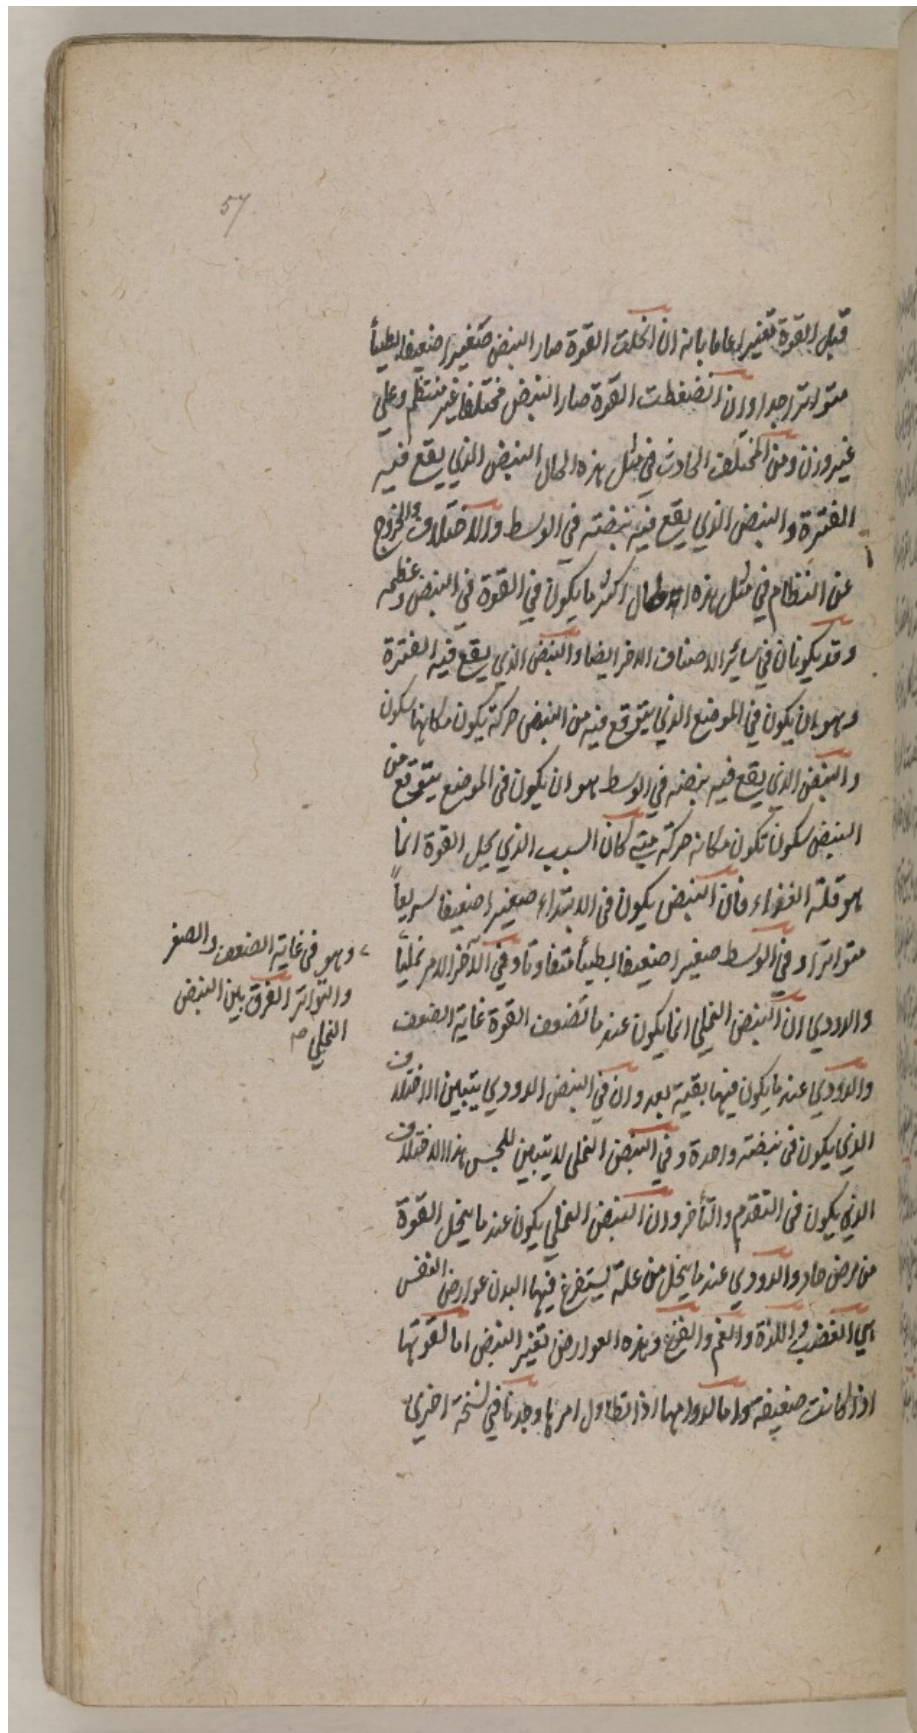 57
قبل القوة تغييرا عاما بانه ان انحلت القوة صار النبض صغيرا ضعيفا بطيأ
متواترا جدا وان انضغطت القوة صار النبض مختلفا غير منتظم وعلي
غير وزن ومن المختلف الحادث في مثل هذه الحال النبض الذي يقع فيه
الفترة والنبض الذي يقع فيه نبضته في الوسط والاختلاف والخروج
عن النظام في مثل هذه الحال اكثر ما يكون في القوة في النبض وعظمه
وقد يكونان في سائر الاصناف الاخر ايضا والنبض الذي يقع فيه الفترة
وهو ان يكون في الموضع الذي يتوقع فيه من النبض حركة يكون مكانها سكون
والنبض الذي يقع فيه نبضته في الوسط هو ان يكون في الموضع يتوقع من
النبض سكون تكون مكانه حركة متي كان السبب الذي يحل القوة انما
هو قلة الغذاء فان النبض يكون في الابتداء صغيرا ضعيفا سريعاً
متواترا وفي الوسط صغيرا ضعيفا بطيأ متفاوتا وفي الآخر الامر نملياً
والدودي ان النبض النملي انما يكون عند ما تضعف القوة غاية الضعف
والدودي عند ما يكون فيها بقية بعد وان في النبض الدودي يتبين الاختلاف
الذي يكون في نبضته واحدة وفي النبض النملي لا يتبين للمجس هذا الاختلاف
الذي يكون في التقدم والتأخر وان النبض النملي يكون عند ما ينحل القوة
من مرض حاد والدودي عند ما ينحل من علة يستفرغ فيها البدن عوارض النفس
هي الغضب واللذة والغم والفزع وهذه العوارض تغير النبض اما لقوتها
اذا كانت ضعيفة واما لدوامها اذا تطاول امرها وجدنا في نسخة اخري
وهو في غاية الضعف والصغر
والتواتر الفرق بين النبض
النملي صح